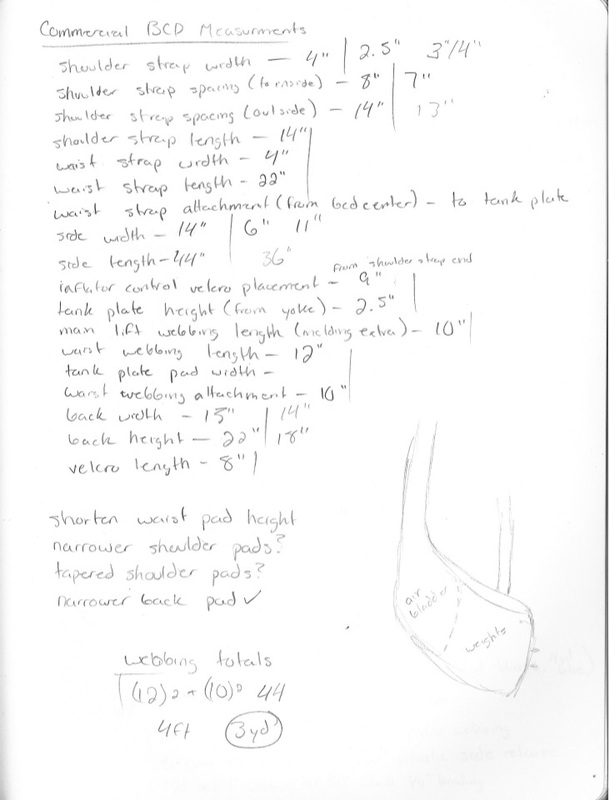 Commercial BCD Measurments
shoulder strap width – 4" | 2.5" 3"/4"
shoulder strap spacing (to inside) – 8" | 7"
shoulder strap spacing (outside) – 14" | 13"
shoulder strap length – 14" |
waist strap width – 4"
waist strap length – 22"
waist strap attachment (from bcd center) – to tank plate
side width – 14" | 6" 11"
side length – 44" 36"
from shoulder strap end
inflator control velcro placement – 9"
tank plate height (from yoke) – 2.5" |
man lift webbing length (including extra) – 10" |
waist webbing length – 12"
tank plate pad width –
waist webbing attachment – 10" |
back width – 15" | 14"
back height – 22" | 18"
velcro length – 8" |
shorten waist pad height
narrower shoulder pads?
tapered shoulder pads?
narrower back pad ✓
air bladder
weights
webbing totals
(12)2 + (10)2 44
4ft 3yd